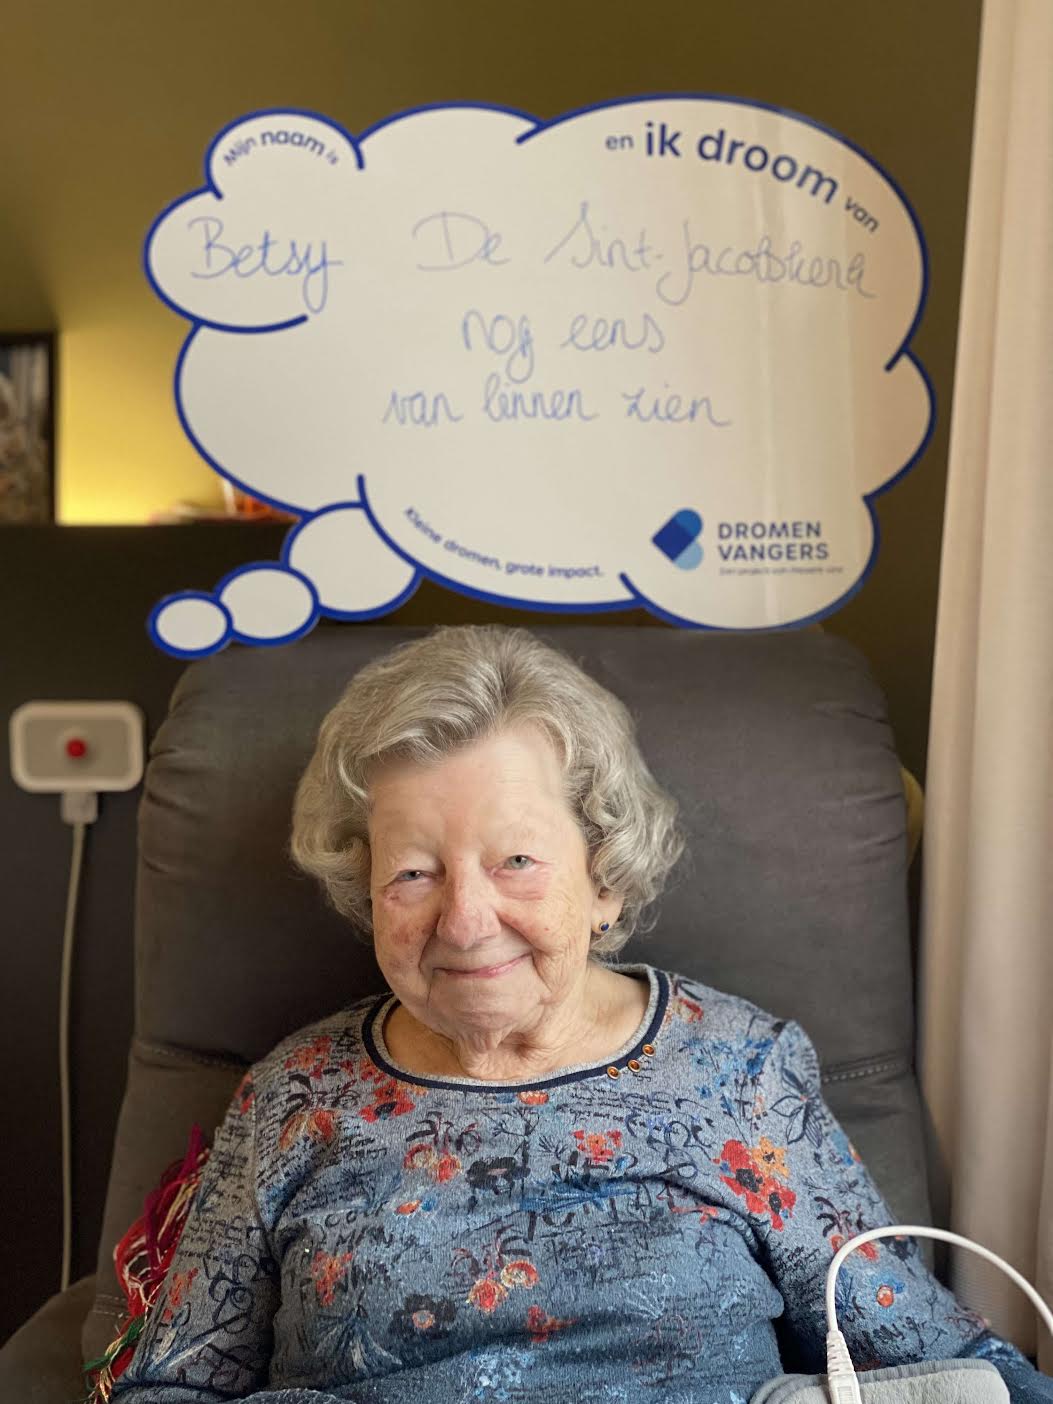 Mijn naam is
Betsy
en ik droom van
De Sint-Jacobskerk
nog eens
van binnen zien
Kleine dromen, grote impact.
DROMEN
VANGERS